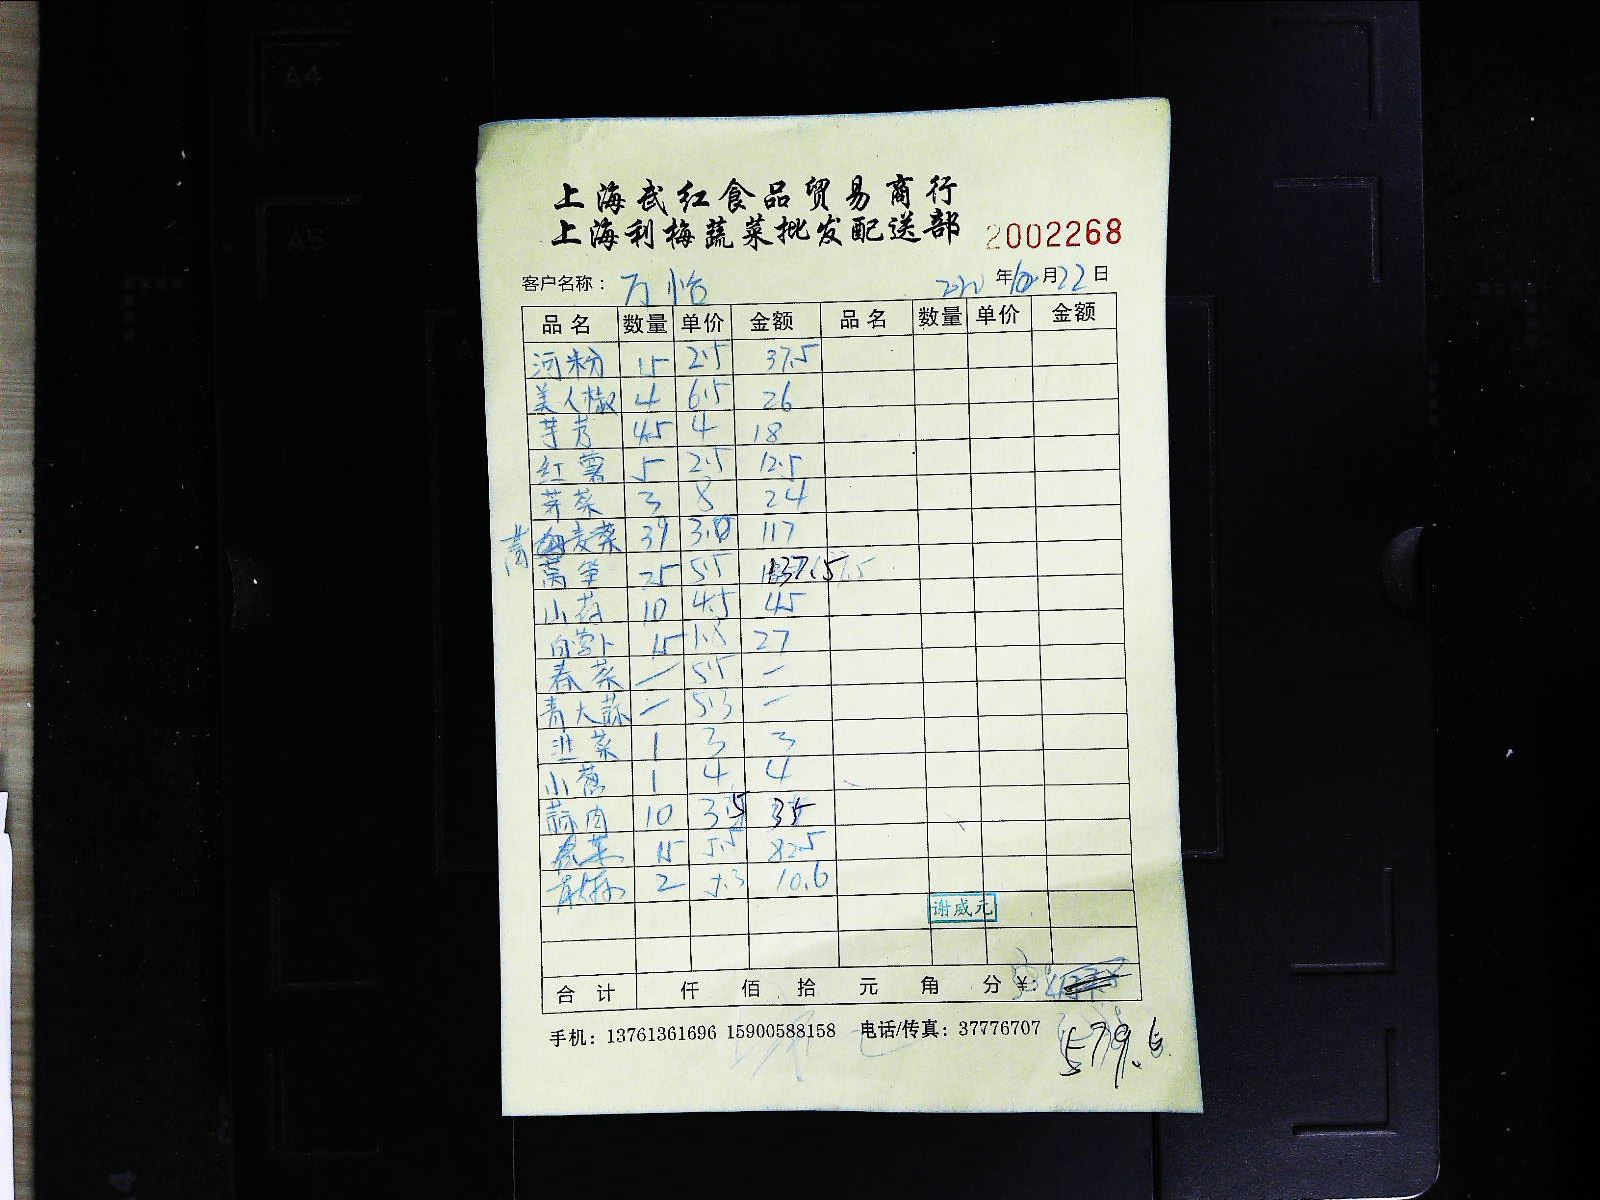 上海武红食品贸易商行
上海利梅蔬菜批发配送部 2002268
客户名称： 万怡 年10月22日
品名 数量 单价 金额 品名 数量 单价 金额
河粉 15 2.5 37.5
美人椒 4 6.5 26
芋艿 4.5 4 18
红薯 5 2.5 12.5
芽菜 3 8 24
麦菜 39 3.0 117
莴笋 25 5.5 137.5
山药 10 4.5 45
白萝卜 15 1.8 27
春菜 — 5.5 —
青大蒜 — 5.3 —
韭菜 1 3 3
小葱 1 4 4
蒜肉 10 3.5 35
15 5.5 82.5
2 5.3 10.6
谢威元
合计 仟 佰 拾 元 角 分 ¥:
手机：13761361696 15900588158 电话/传真：37776707
579.6